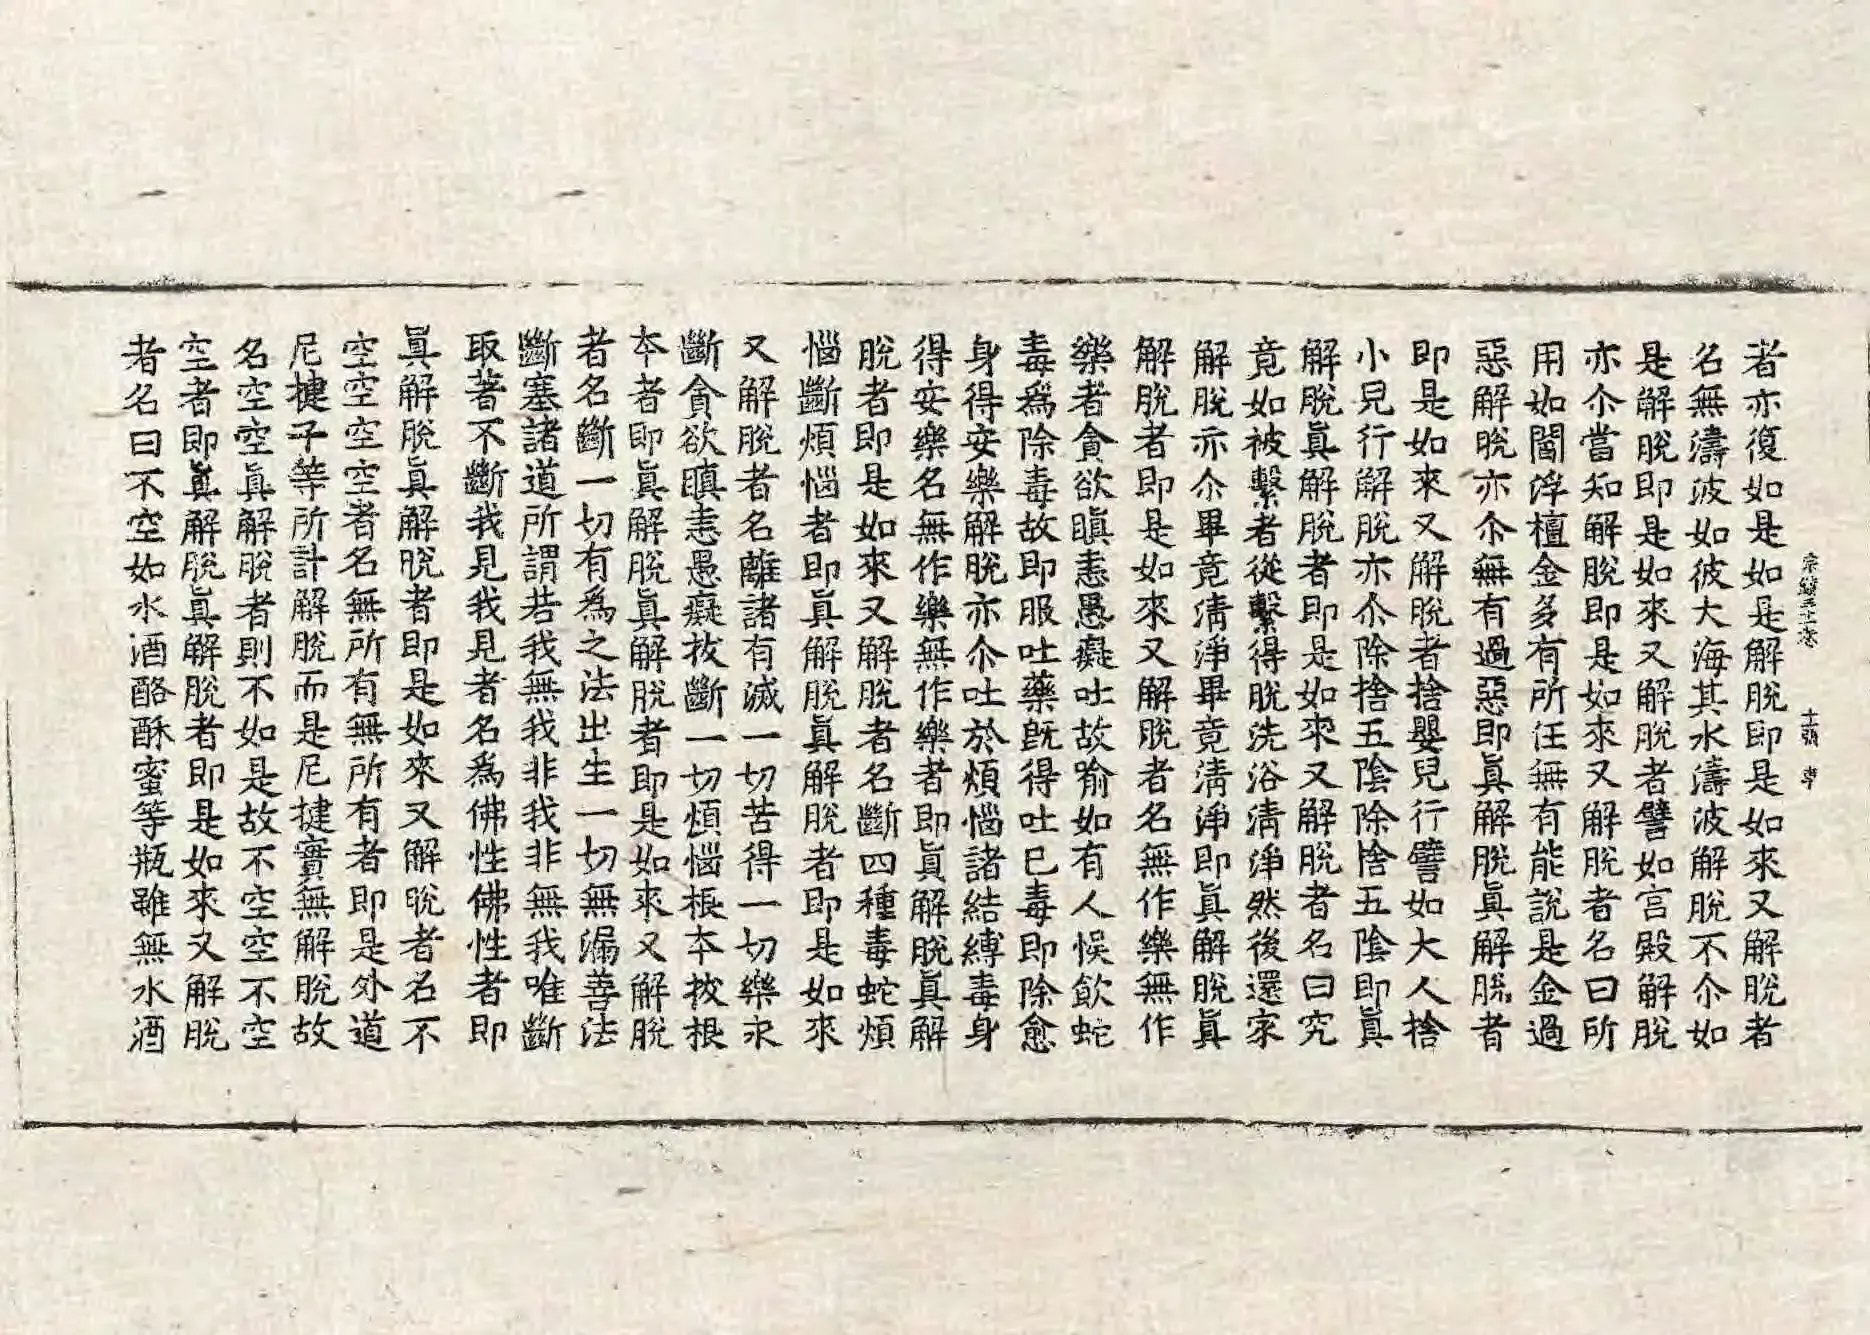 者亦復如是如是解脫即是如來又解脫者
名無濤波如彼大海其水濤波解脫不尒如
是解脫即是如來又解脫者譬如宮殿解脫
亦尒當知解脫即是如來又解脫者名曰所
用如閻浮檀金多有所任無有能說是金過
惡解脫亦尒無有過惡即眞解脫眞解脫者
即是如來又解脫者捨嬰兒行譬如大人捨
小兒行解脫亦尒除捨五陰除捨五陰即眞
解脫眞解脫者即是如來又解脫者名曰究
竟如被繫者從繫得脫洗浴清淨然後還家
解脫亦尒畢竟清淨畢竟清淨即眞解脫眞
解脫者即是如來又解脫者名無作樂無作
樂者貪欲瞋恚愚癡吐故喻如有人悞飲蛇
毒爲除毒故即服吐藥旣得吐已毒即除愈
身得安樂解脫亦尒吐於煩惱諸結縛毒身
得安樂名無作樂無作樂者即眞解脫眞解
脫者即是如來又解脫者名斷四種毒蛇煩
惱斷煩惱者即眞解脫眞解脫者即是如來
又解脫者名離諸有滅一切苦得一切樂永
斷貪欲瞋恚愚癡拔斷一切煩惱根本拔根
本者即眞解脫眞解脫者即是如來又解脫
者名斷一切有爲之法出生一切無漏善法
斷塞諸道所謂若我無我非我非無我唯斷
取著不斷我見我見者名爲佛性佛性者即
眞解脫眞解脫者即是如來又解脫者名不
空空空空空者名無所有無所有者即是外道
尼揵子等所計解脫而是尼揵實無解脫故
名空空眞解脫者則不如是故不空空不空
空者即眞解脫眞解脫者即是如來又解脫
者名曰不空如水酒酪酥蜜等瓶雖無水酒